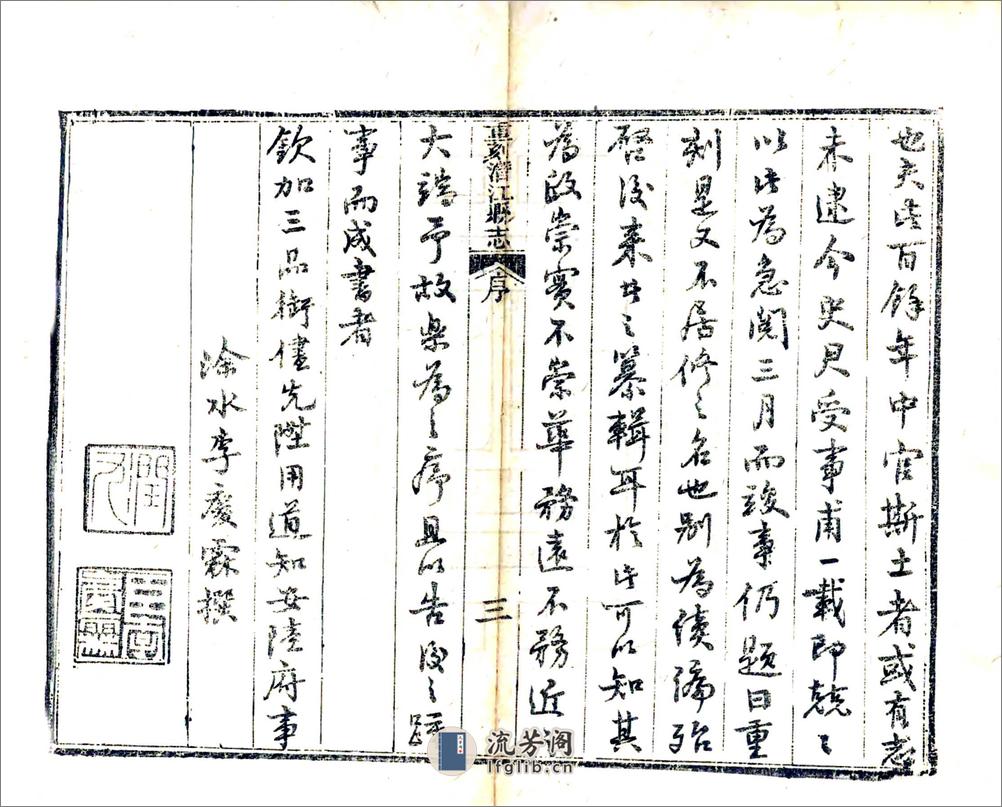 也夫此百餘年中官斯土者或有志
未逮今史尹受事甫一載即兢〻
以此為急閱三月而竣事仍題曰重
刻是又不居修之名也别為續編殆
啓後來者之纂輯耳於此可以知其
為政崇實不崇華務遠不務近
重刻潛江縣志
序
三
大端予故樂為之序且以告後之踵
事而成書者
欽加三品銜儘先陞用道知安陸府事
涂水李慶霖撰
流芳阁
lfglib.cn